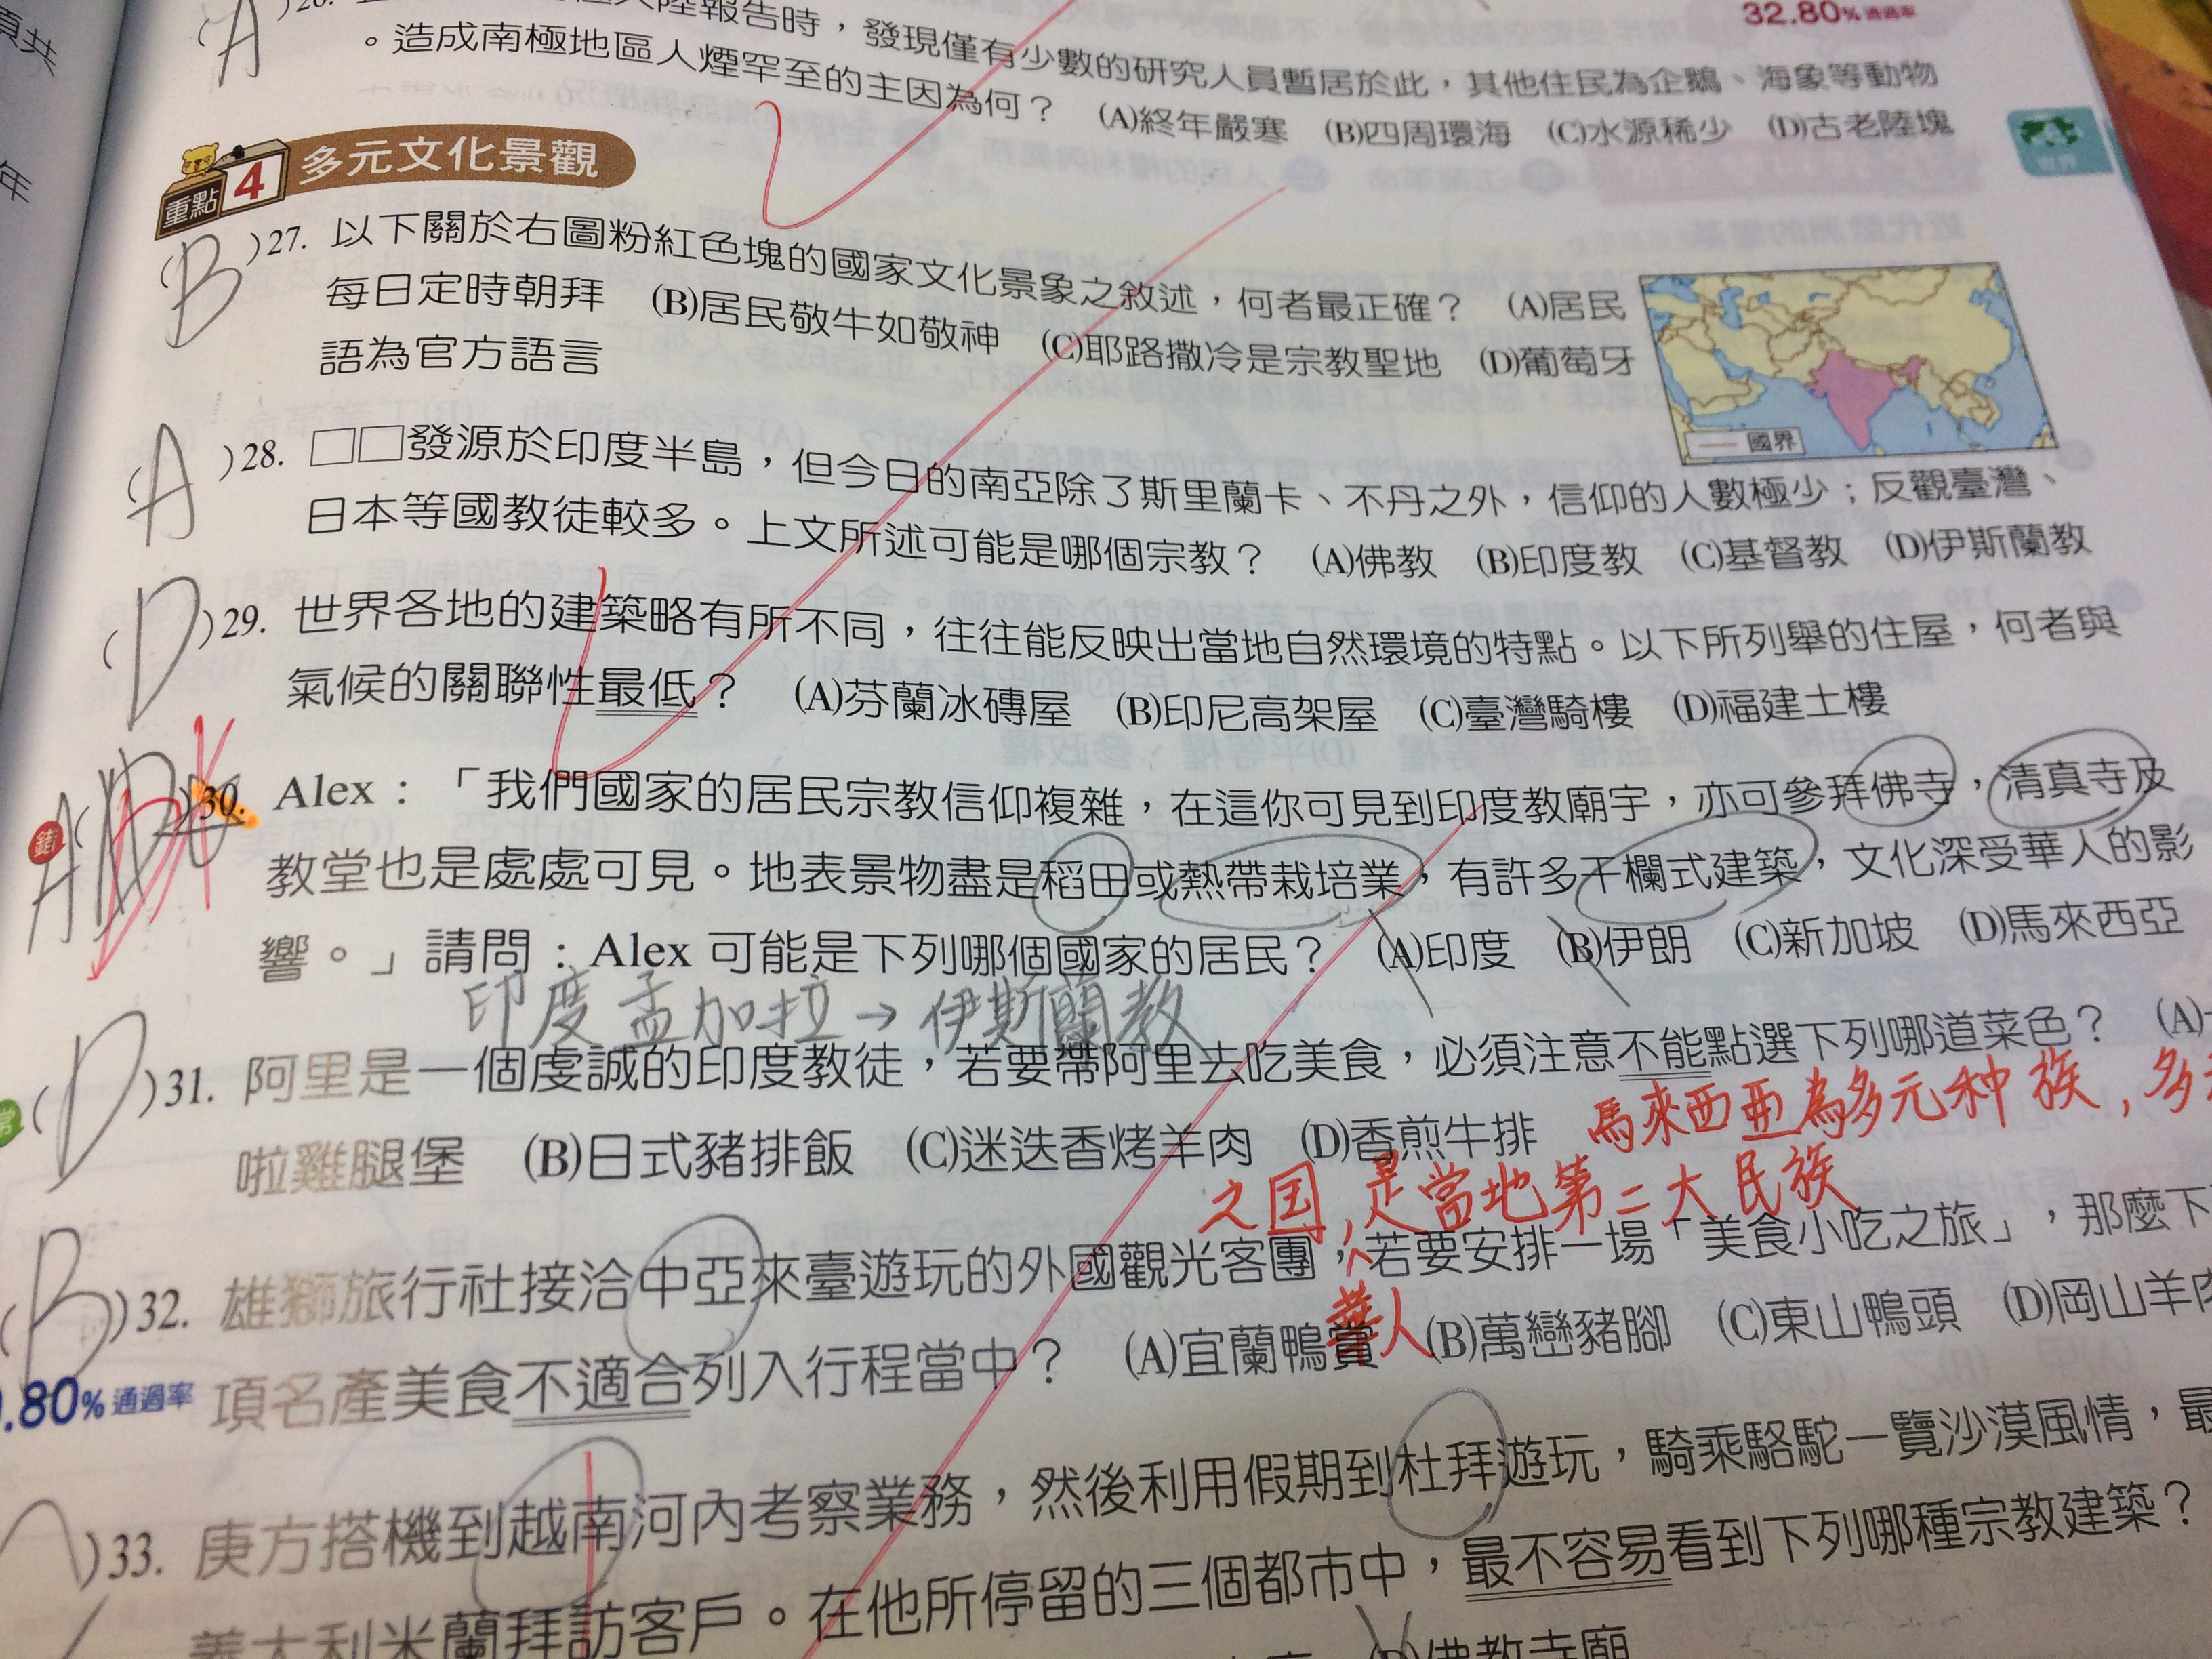 項共
年
A )26.
大陸報告時，發現僅有少數的研究人員暫居於此，其他住民為企鵝、海象等動物
。造成南極地區人煙罕至的主因為何？ (A)終年嚴寒 (B)四周環海 (C)水源稀少 (D)古老陸塊
32.80% 通過率
世界
重點 4 多元文化景觀
(B )27. 以下關於右圖粉紅色塊的國家文化景象之敘述，何者最正確？ (A)居民
每日定時朝拜 (B)居民敬牛如敬神 (C)耶路撒冷是宗教聖地 (D)葡萄牙
語為官方語言
國界
(A )28. □□發源於印度半島，但今日的南亞除了斯里蘭卡、不丹之外，信仰的人數極少；反觀臺灣、
日本等國教徒較多。上文所述可能是哪個宗教？ (A)佛教 (B)印度教 (C)基督教 (D)伊斯蘭教
(D )29. 世界各地的建築略有所不同，往往能反映出當地自然環境的特點。以下所列舉的住屋，何者與
氣候的關聯性最低？ (A)芬蘭冰磚屋 (B)印尼高架屋 (C)臺灣騎樓 (D)福建土樓
錯
)30. Alex：「我們國家的居民宗教信仰複雜，在這你可見到印度教廟宇，亦可參拜佛寺，清真寺及
教堂也是處處可見。地表景物盡是稻田或熱帶栽培業，有許多干欄式建築，文化深受華人的影
響。」請問：Alex 可能是下列哪個國家的居民？ (A)印度 (B)伊朗 (C)新加坡 (D)馬來西亞
印度孟加拉→伊斯蘭教
常
(D )31. 阿里是一個虔誠的印度教徒，若要帶阿里去吃美食，必須注意不能點選下列哪道菜色？ (A)
啦雞腿堡 (B)日式豬排飯 (C)迷迭香烤羊肉 (D)香煎牛排
馬來西亞為多元种族，多
之国，是當地第二大民族
華人
(B )32. 雄獅旅行社接洽中亞來臺遊玩的外國觀光客團，若要安排一場「美食小吃之旅」，那麼下
項名產美食不適合列入行程當中？ (A)宜蘭鴨賞 (B)萬巒豬腳 (C)東山鴨頭 (D)岡山羊肉
.80% 通過率
)33. 庚方搭機到越南河內考察業務，然後利用假期到杜拜遊玩，騎乘駱駝一覽沙漠風情，最
義大利米蘭拜訪客戶。在他所停留的三個都市中，最不容易看到下列哪種宗教建築？
(D)佛教寺廟